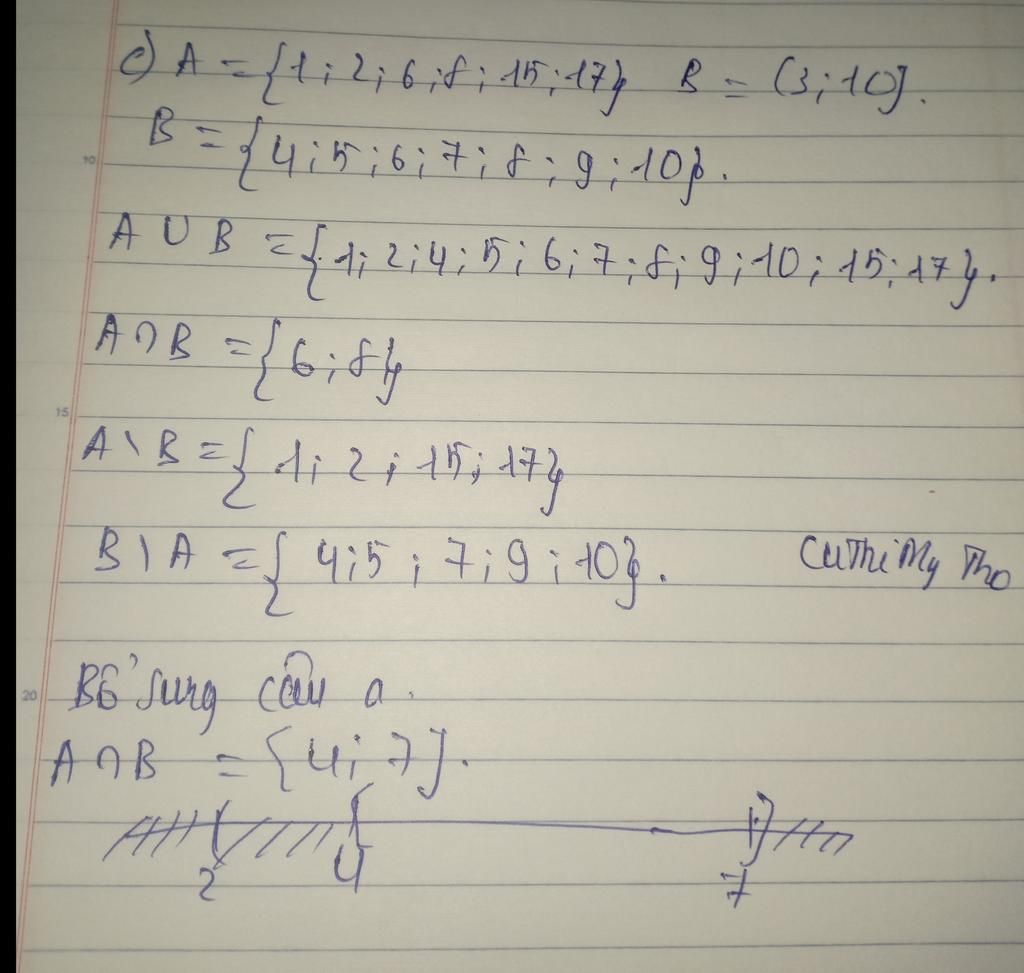 c) A = {1; 2; 6; 8; 15; 17} B = (3; 10].
10 B = {4; 5; 6; 7; 8; 9; 10}.
A ∪ B = {1; 2; 4; 5; 6; 7; 8; 9; 10; 15; 17}.
A ∩ B = {6; 8}
15
A \ B = {1; 2; 15; 17}
B \ A = {4; 5; 7; 9; 10}. Cù Thị Mỹ Tho
20 Bổ sung câu a.
A ∩ B = {4; 7].
2 4 7